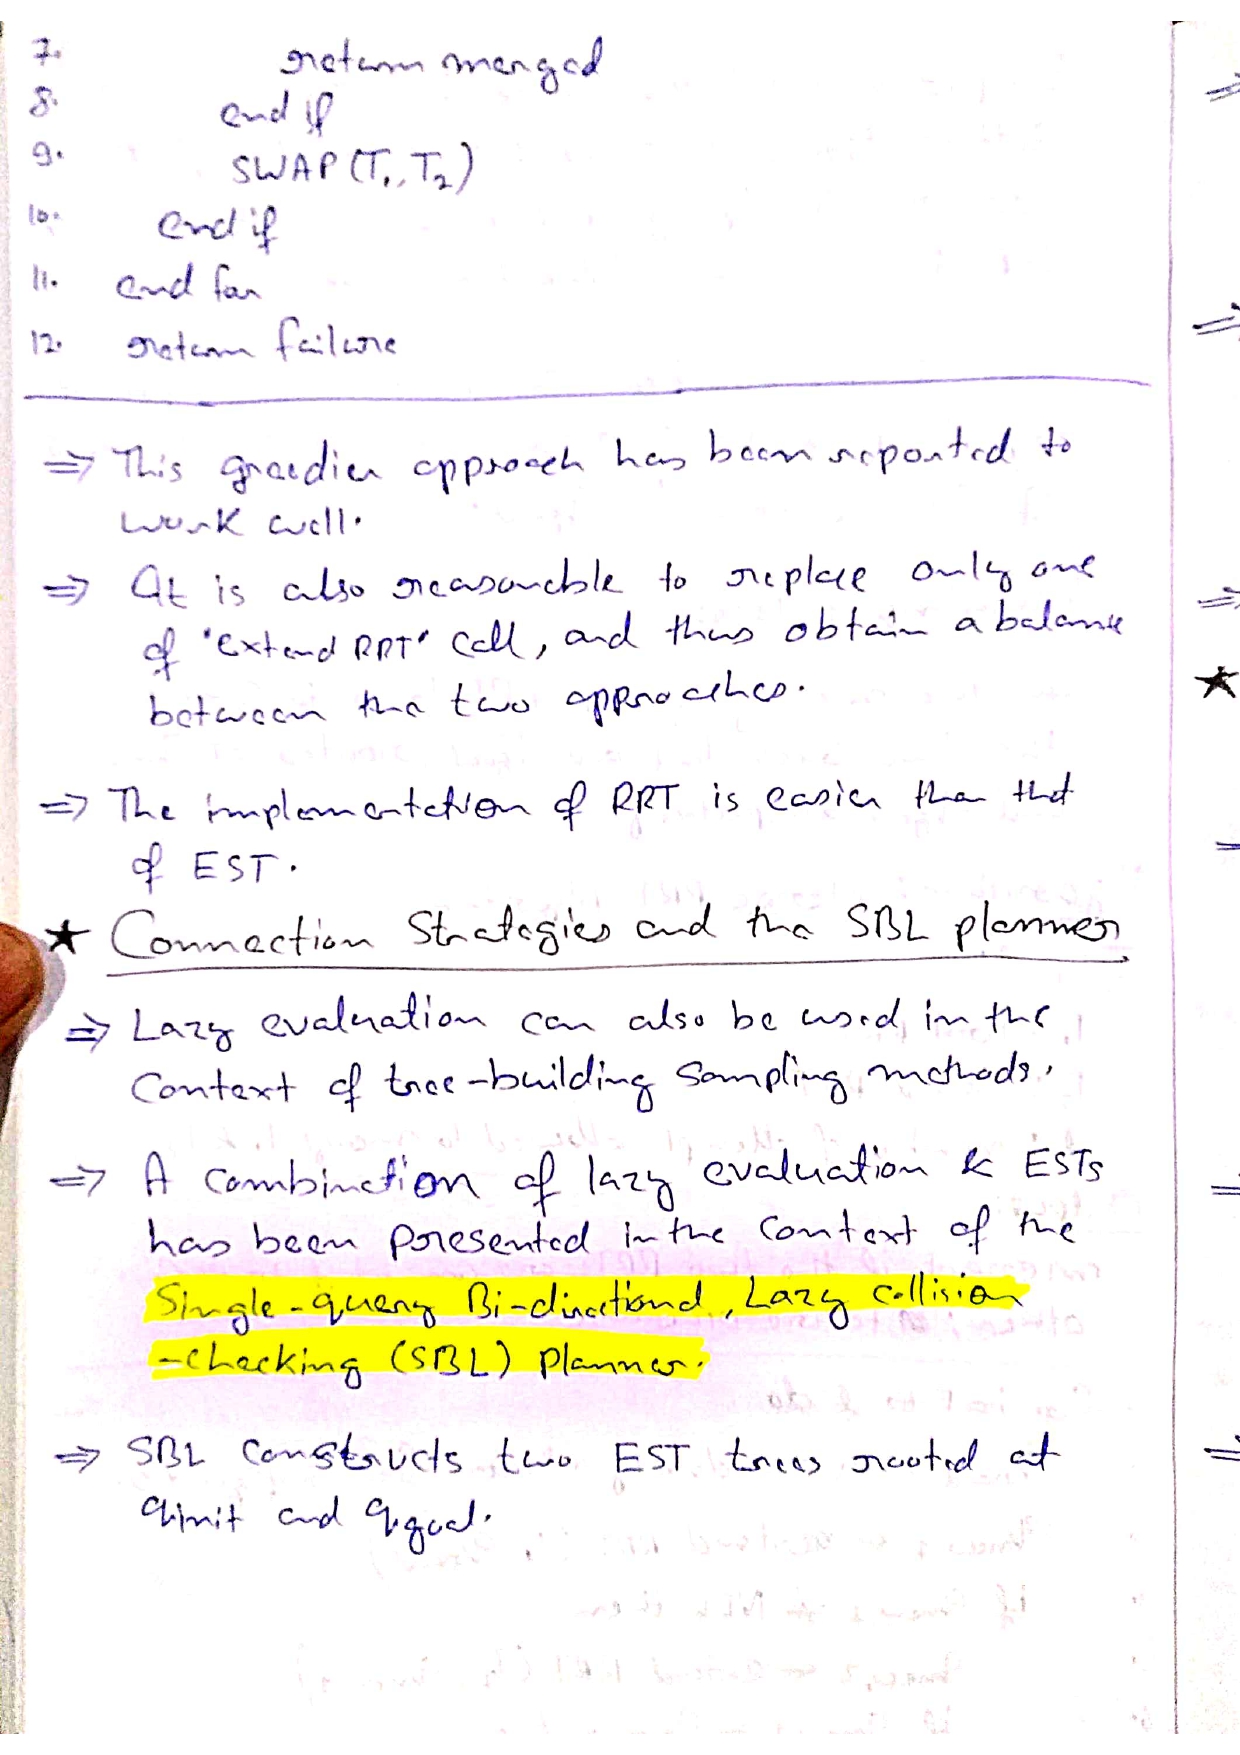 7. return merged
8. end if
9. SWAP (T1, T2)
10. end if
11. end for
12. return failure
⇒ This greedier approach has been reported to
work well.
⇒ It is also reasonable to replace only one
of 'extend RRT' call, and thus obtain a balance
between the two approaches.
⇒ The implementation of RRT is easier than that
of EST.
★ Connection Strategies and the SBL planner
⇒ Lazy evaluation can also be used in the
Context of tree-building sampling methods.
⇒ A combination of lazy evaluation & ESTs
has been presented in the context of the
Single-query Bi-directional, Lazy collision
-checking (SBL) planner.
⇒ SBL constructs two EST trees rooted at
qinit and qgoal.